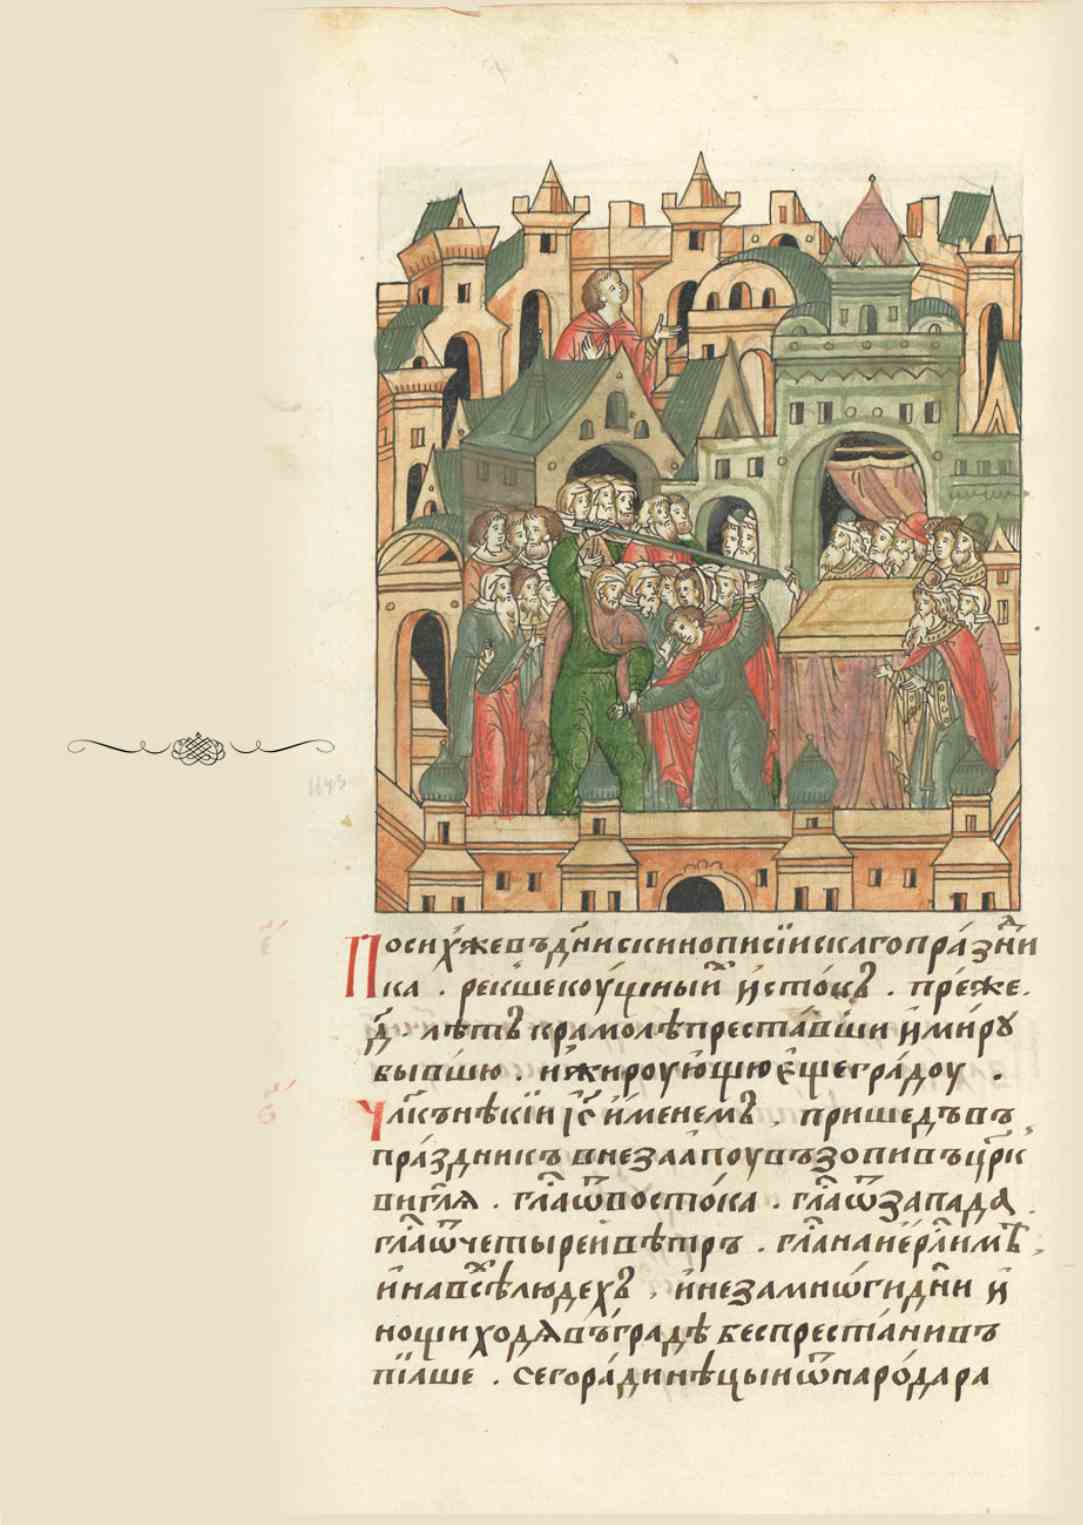 Посиⷯжевъдн҃искинописїискагопра́зⷣни
ка . рекшекоу́щныⷯи и҆сто́къ . пре́же .
д҃ . лѣтъ крамолѣпреста́вши и҆ми́рꙋ
бы́вшю . и҆жироую́щю є҆щегра́доу .
Чл҃къ нѣ́кїи і҆с҃ и҆́менемъ . пришедъвъ
пра́здникъ внеза́апоу възопивъцр҃к
ви гл҃я . гла҃ ѿвосто́ка . гла҃ ѿза́пада .
гла҃ ѿчетырейвѣтръ . гла҃ нанаіе҆рⷭ҇лимъ .
и҆навсѣⷯлюдехъ . и҆незамнѡ́гидн҃и и҆
нощиходѧ́въ гра́дѣ беспреста́нивъ
пїаше . сегора́динѣцыиѿнаро́дара